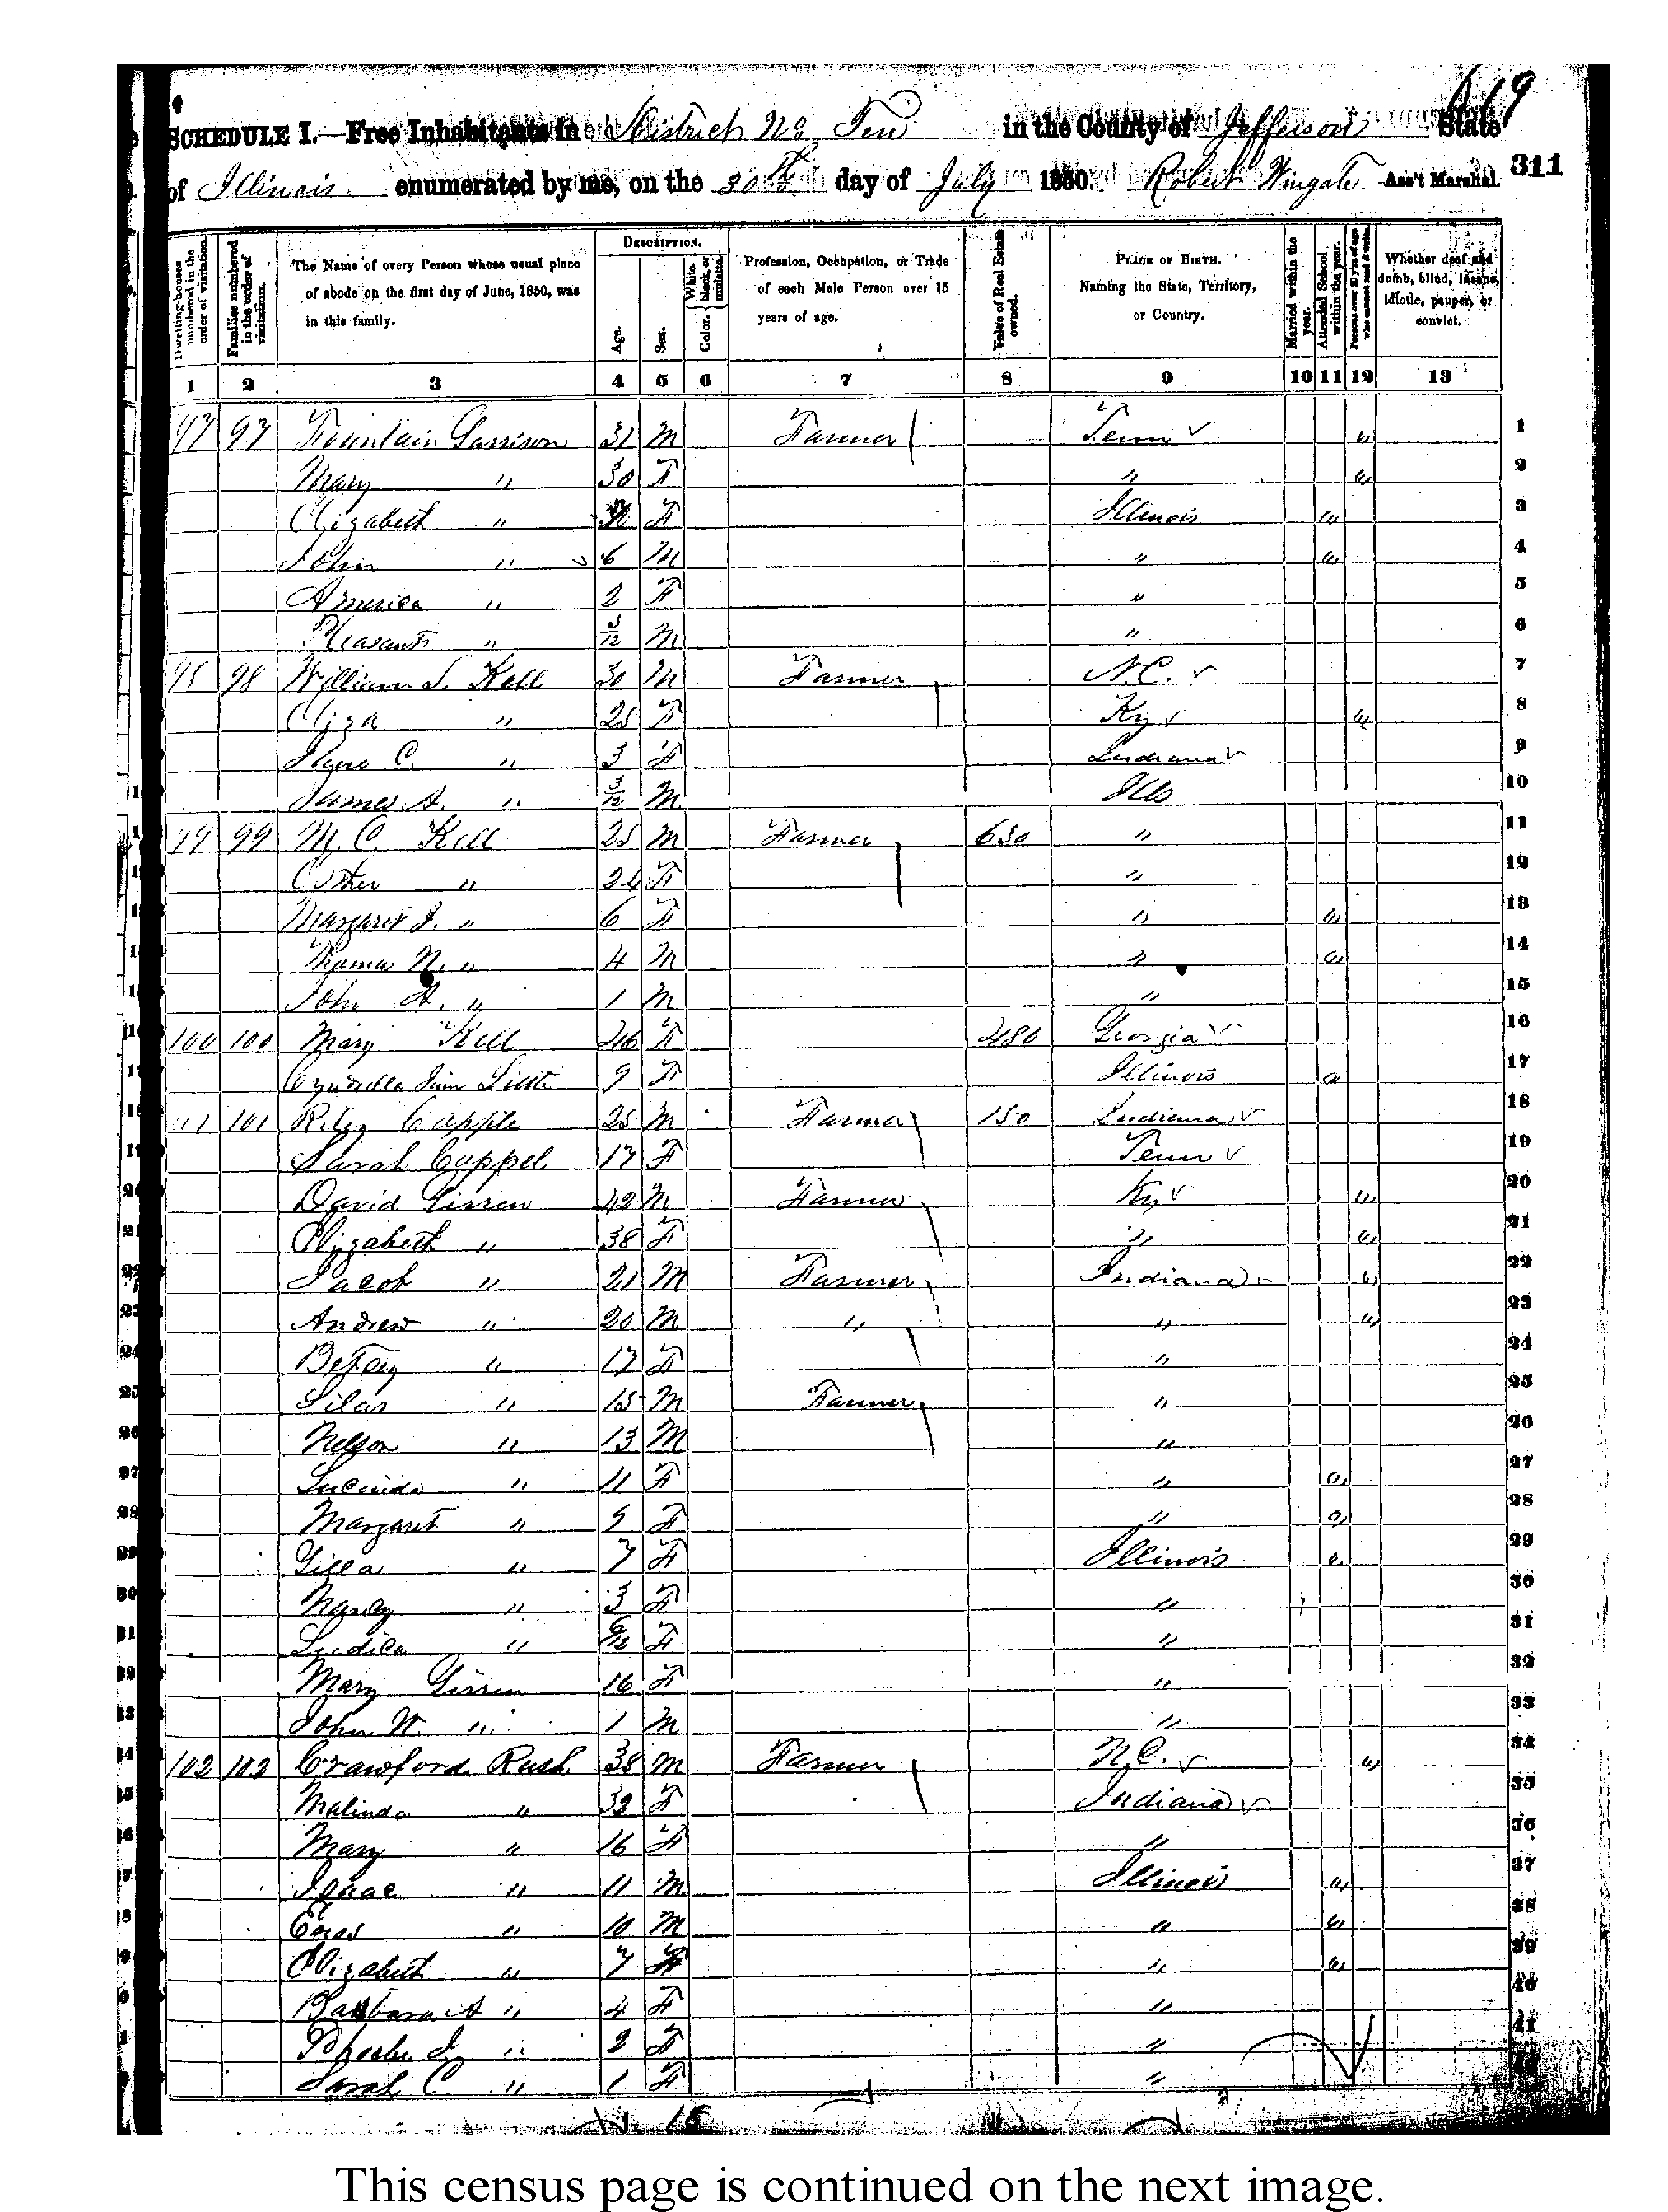 619
SCHEDULE I.—Free Inhabitants in District No Ten in the County of Jefferson State
of Illinois enumerated by me, on the 30th day of July 1850. Robert Wingate Ass't Marshal. 311
Dwelling-houses numbered in the order of visitation. Families numbered in the order of visitation. The Name of every Person whose usual place of abode on the first day of June, 1850, was in this family. DESCRIPTION. Age. Sex. Color. White, black, or mulatto. Profession, Occupation, or Trade of each Male Person over 15 years of age. Value of Real Estate owned. PLACE OF BIRTH. Naming the State, Territory, or Country. Married within the year. Attended School within the year. Persons over 20 y'rs of age who cannot read & write. Whether deaf and dumb, blind, insane, idiotic, pauper, or convict.
1 2 3 4 5 6 7 8 9 10 11 12 13
97 97 Fountain Garrison 31 M Farmer Tenn 1
Mary " 30 F " 2
Elizabeth " F Illinois 3
John " 6 M " 4
America " 2 F " 5
Pleasant " 3/12 M " 6
98 98 William S. Kell 30 M Farmer N.C. 7
Eliza " 25 F Ky 8
C. " 3 F Indiana 9
James A. " 3/12 M Ills 10
99 99 M. C. Kell 25 M Farmer 650 " 11
Esther " 24 F " 12
Margaret J. " 6 F " 13
Thomas N. " 4 M " 14
John A. " 1 M " 15
100 100 Mary Kell 46 F 480 Georgia 16
9 F Illinois 17
101 101 Riley Capple 25 M Farmer 150 Indiana 18
Sarah Cappel 17 F Tenn 19
David 42 M Farmer Ky 20
Elizabeth " 38 F " 21
Jacob " 21 M Farmer Indiana 22
Andrew " 20 M " " 23
Betsy " 17 F " 24
Silas " 15 M Farmer " 25
Nelson " 13 M " 26
Lucinda " 11 F " 27
Margaret " 9 F " 28
" 7 F Illinois 29
Nancy " 3 F " 30
" F " 31
Mary 16 F " 32
John W. " 1 M " 33
102 102 Crawford Rush 38 M Farmer N.C. 34
Malinda " 32 F Indiana 35
Mary " 16 F " 36
Isaac " 11 M Illinois 37
Enos " 10 M " 38
Elizabeth " 7 F " 39
Barbara A " 4 F " 40
Phoebe J. " 2 F " 41
Sarah C. " 1 F "
18
This census page is continued on the next image.